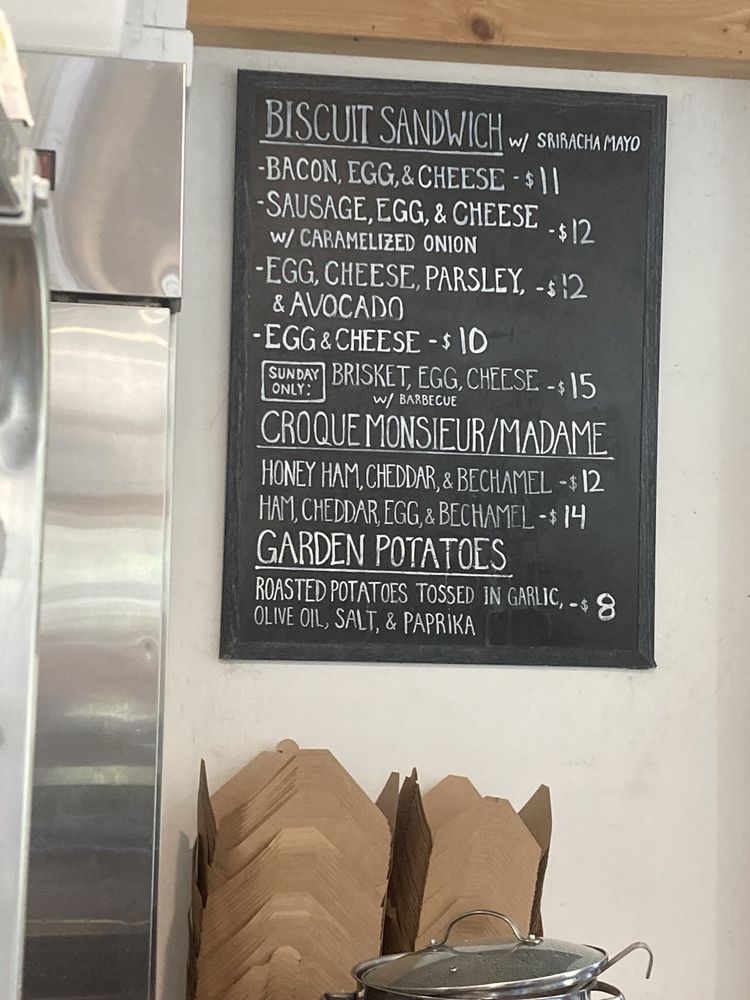 BISCUIT SANDWICH w/ SRIRACHA MAYO
-BACON, EGG, & CHEESE - $11
-SAUSAGE, EGG, & CHEESE - $12
w/ CARAMELIZED ONION
-EGG, CHEESE, PARSLEY, - $12
& AVOCADO
-EGG & CHEESE - $10
SUNDAY ONLY: BRISKET, EGG, CHEESE - $15
w/ BARBECUE
CROQUE MONSIEUR/MADAME
HONEY HAM, CHEDDAR, & BECHAMEL - $12
HAM, CHEDDAR, EGG, & BECHAMEL - $14
GARDEN POTATOES
ROASTED POTATOES TOSSED IN GARLIC, - $8
OLIVE OIL, SALT, & PAPRIKA